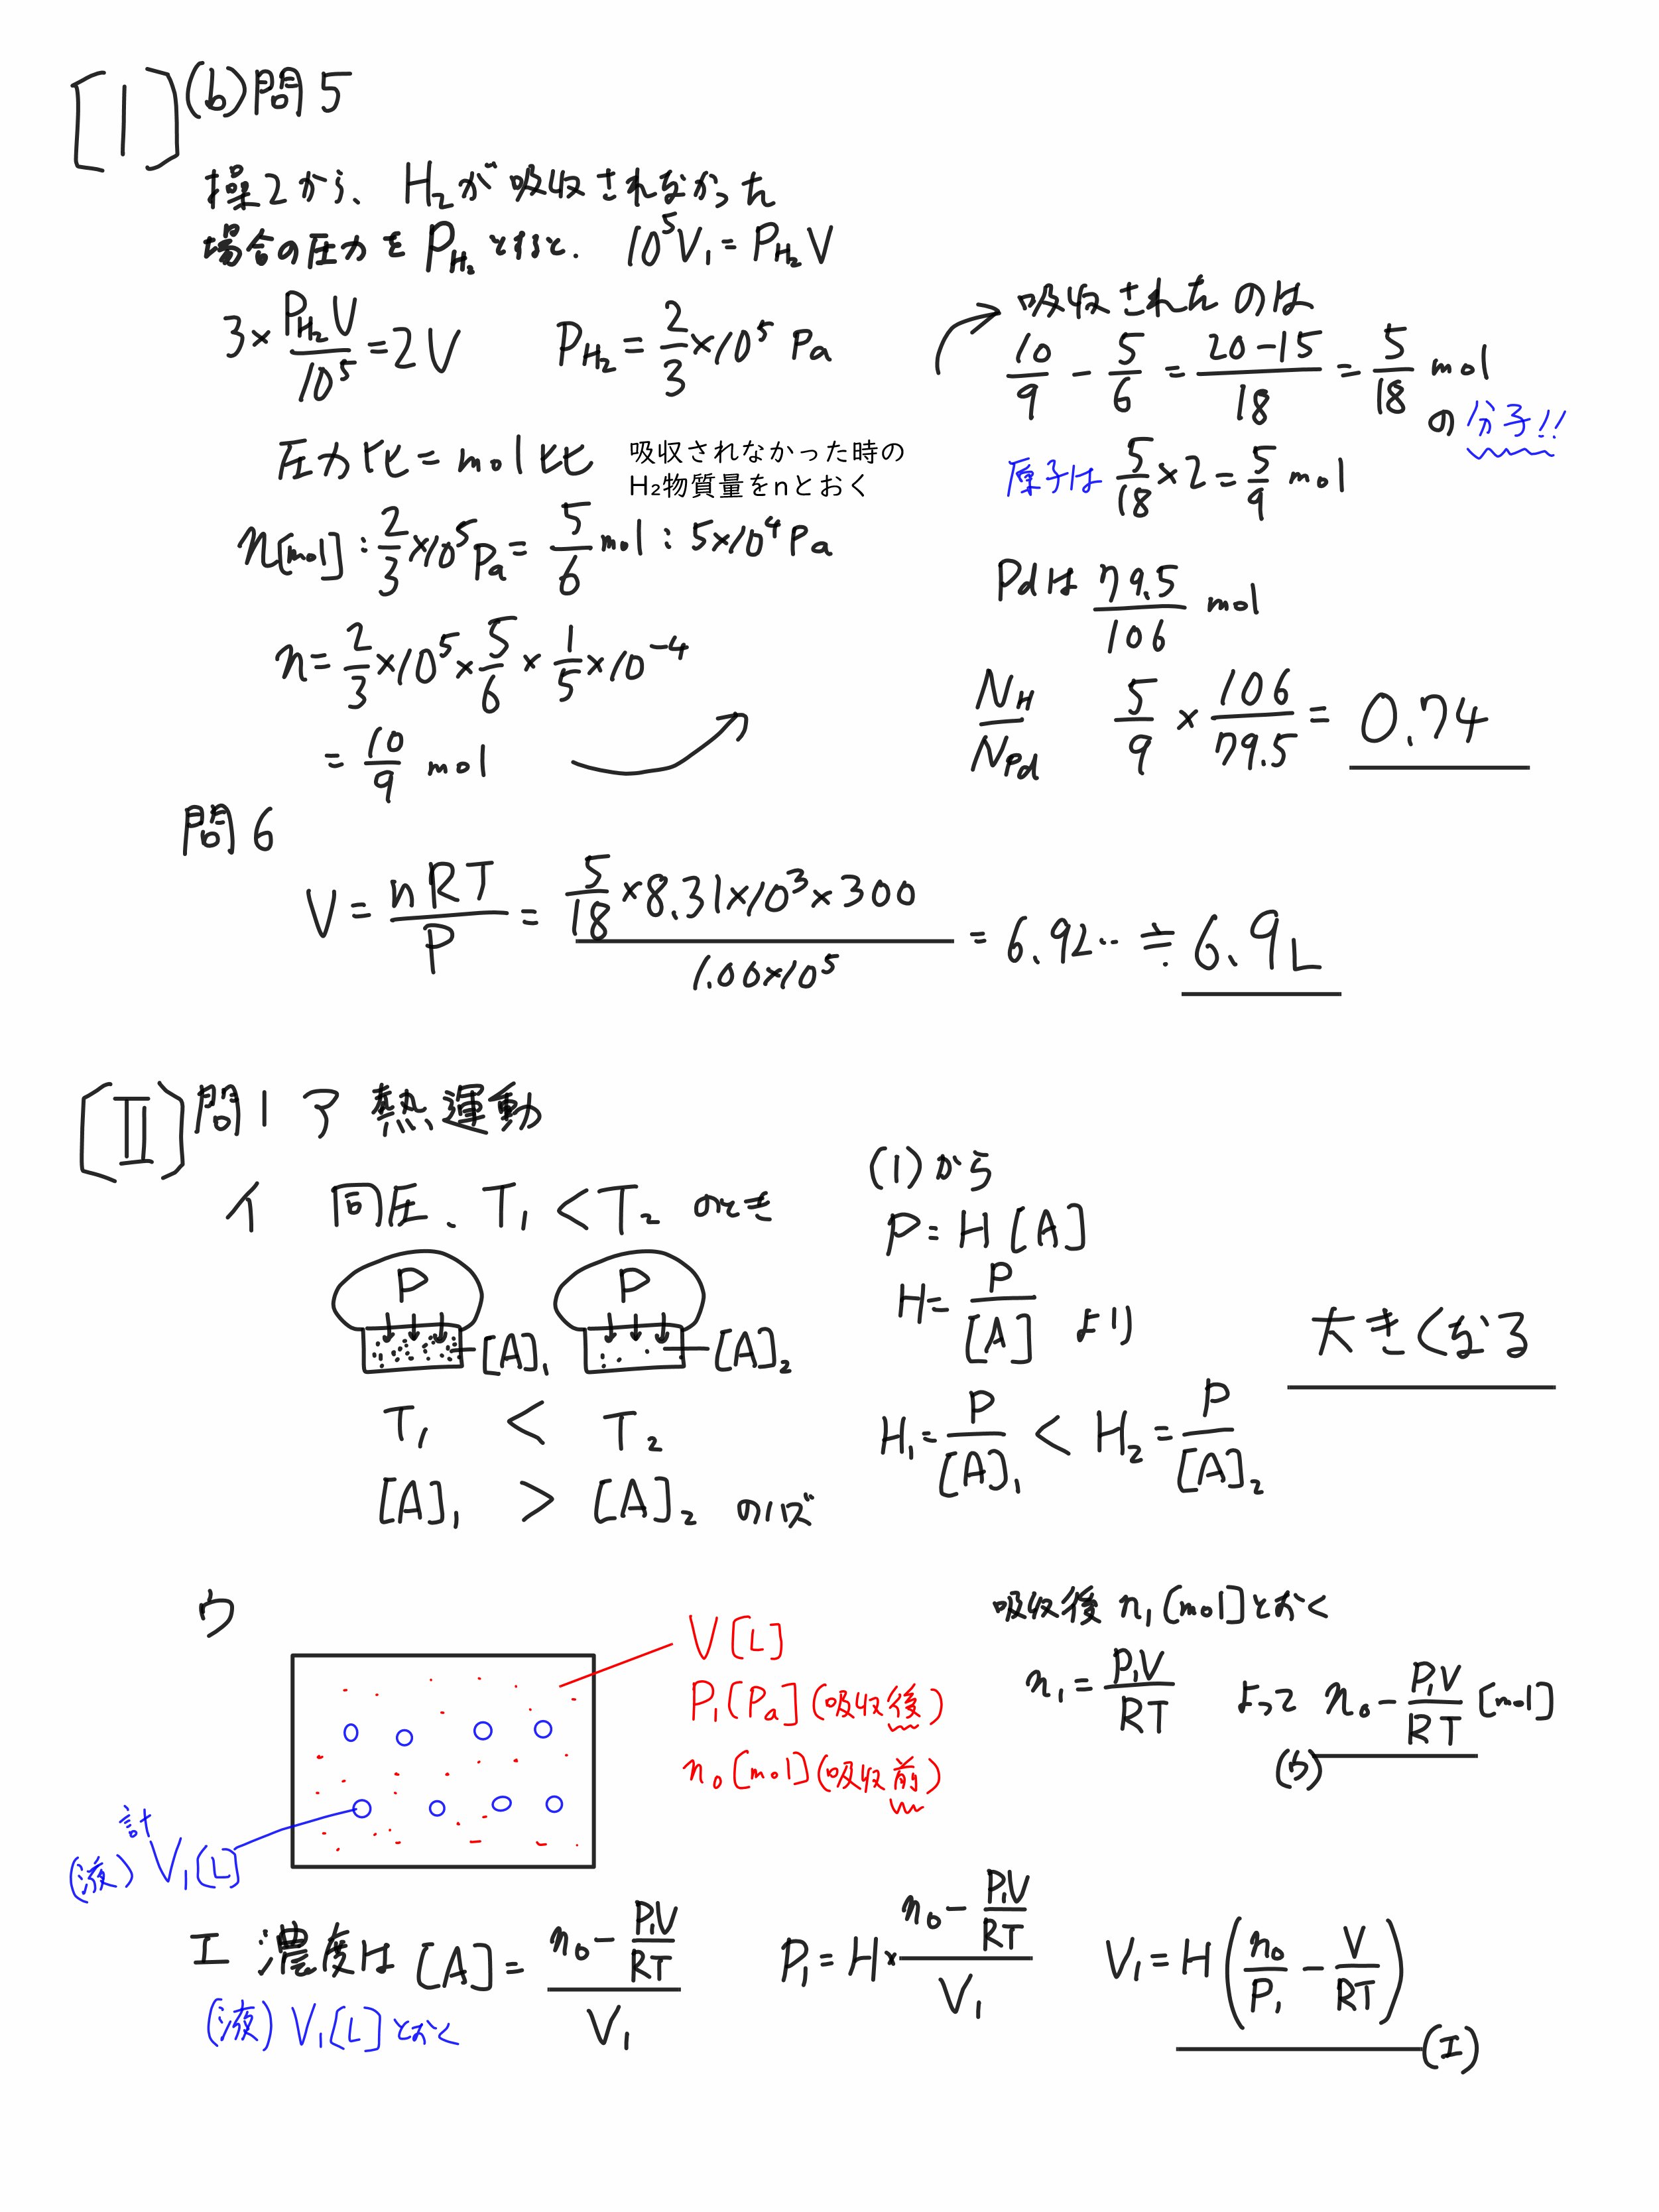 [I] (b)問5
操2から、H₂が吸収されなかった
場合の圧力をP_H₂とすると. 10⁵V₁=P_H₂V
3×P_H₂V/10⁵=2V P_H₂=2/3×10⁵ Pa
圧力比=mol比
吸収されなかった時の
H₂物質量をnとおく
n[mol]:2/3×10⁵Pa=5/6mol:5×10⁴Pa
n=2/3×10⁵×5/6×1/5×10⁻⁴
=10/9 mol
吸収されたのは
10/9-5/6=(20-15)/18=5/18 mol
の分子!!
原子は 5/18×2=5/9 mol
Pdは 79.5/106 mol
N_H/N_Pd 5/9×106/79.5=0.74
問6
V=nRT/P=(5/18×8.31×10³×300)/(1.00×10⁵)=6.92‥≒6.9L
[II] 問1 ア 熱運動
イ 同圧、T₁<T₂ のとき
P P
[A]₁ [A]₂
T₁ < T₂
[A]₁ > [A]₂ のハズ
(1)から
P=H[A]
H=P/[A] より
大きくなる
H₁=P/[A]₁ < H₂=P/[A]₂
ウ
V[L]
P₁[Pa](吸収後)
n₀[mol](吸収前)
計
(液)V₁[L]
吸収後 n₁[mol]とおく
n₁=P₁V/RT よって n₀-P₁V/RT [mol]
(ウ)
エ 濃度は [A]=(n₀-P₁V/RT)/V₁ P₁=H×(n₀-P₁V/RT)/V₁ V₁=H(n₀/P₁-V/RT)
(液)V₁[L]とおく
(エ)